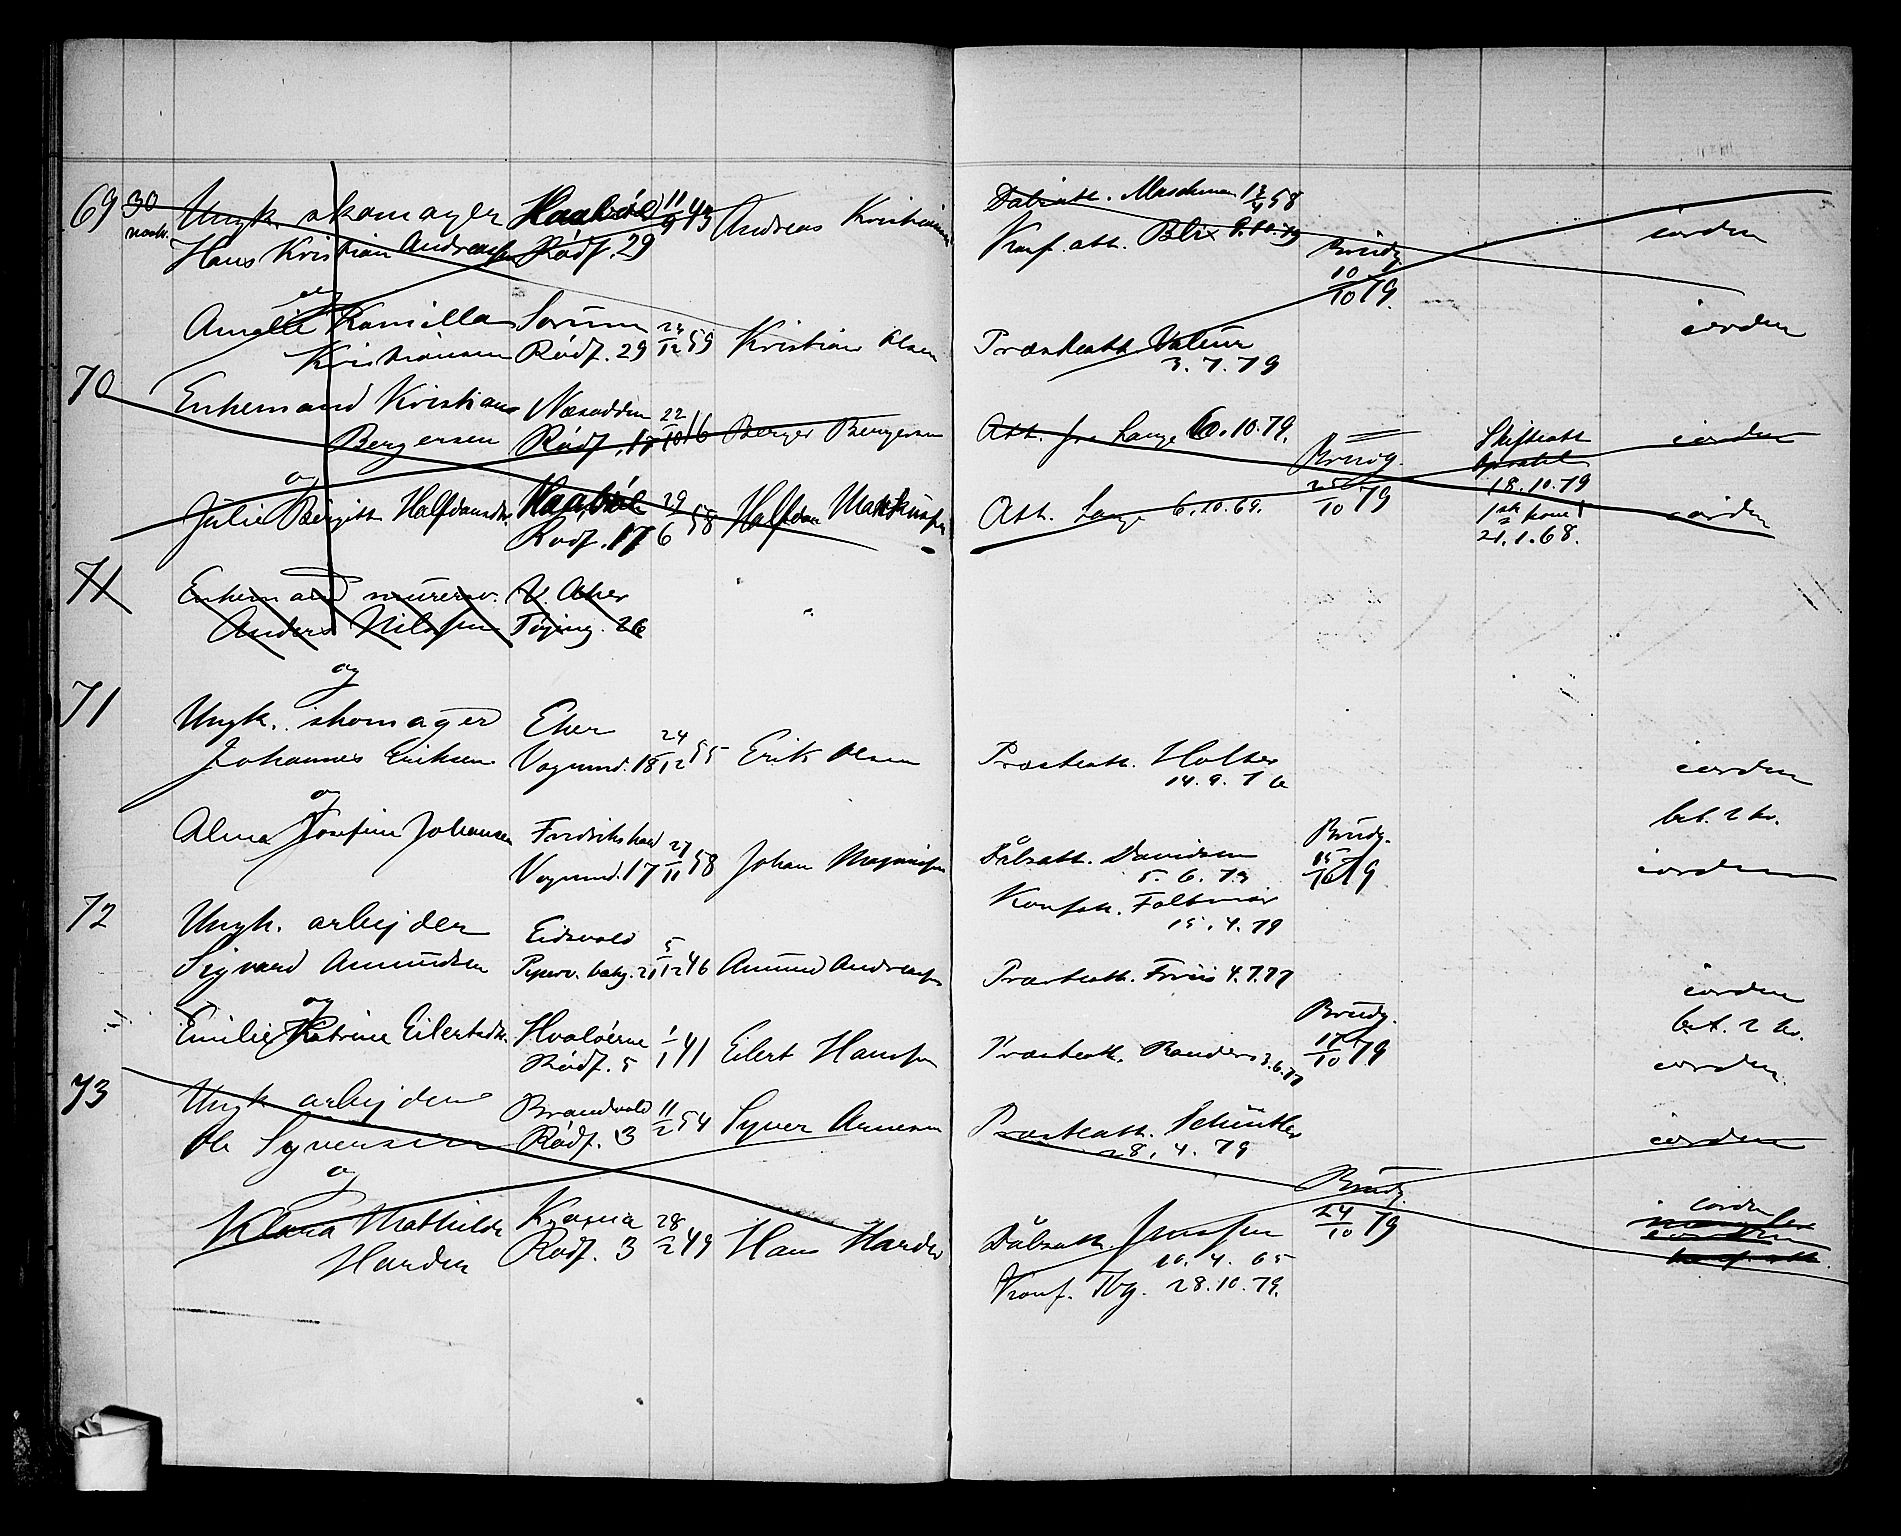 69 30 Ungk. skomager Haabøl 11/9 43 Andreas Kristiansen Dåbsatt. Maschman 13/4 58
Hans Kristian Andreassen Rødf. 29 Konf. att. Blix 9.10.79 Brudg. iorden
og 10/10 79.
Amalie Kamilla Sørum 24/12 59 Kristian Olsen Præsteatt. iorden
Kristiansen Rødf. 29 3.7.79
70 Enkemand Kristian Næsodden 22/10 16 Berger Bergersen Att. fra Lange 6.10.79. Skifteatt. iorden
Bergersen Rødf. 17 Brudg. 18.10.79
og 25/10 79 1ste kone
Julie Birgitte Halfdansdtr. 29/6 58 Halfdan Att. Lange 6.10.69. 21.1.68. iorden
Rødf. 17
71 Enkemand murersv. V. Aker
Anders Nilssen Tøjeng. 26
og
71 Ungk. skomager Eker
Johannes Eriksen Vognmd. 18 24/12 55 Erik Olsen Præsteatt. Holter iorden
og 14.9.76 bet. 2 kr.
Alma Josefine Johansen Fredrikshald 27/11 58 Johan Magnussen Dåbsatt. Davidsen Brudg. 15/10 79 iorden
Vognmd. 17 5.6.79
Konfatt.
15.4.79
72 Ungk. arbejder Eidsvold 5/12 46 Amund Andreassen Præsteatt. Friis 4.7.77 iorden
Sigvard Amundsen Piperv. bakg. 21 bet. 2 kr.
og Brudg.
Emilie Katrine Eilertsdtr. Hvaløerne 1/1 41 Eilert Hanssen Præsteatt. Randers 3.6.77 17/10 79 iorden.
Rødf. 5
73 Ungk arbejder Brandvold 11/2 54 Syver Arnesen Præsteatt. iorden
Ole Syversen Rødf. 3 28.4.79
og Brudg.
Klara Mathilde Krania 28/2 49 Hans Harder Dåbsatt. Jenssen 24/10 79 iorden
Harder Rødf. 3 10.4.65
Konf. Tbg. 28.10.79.